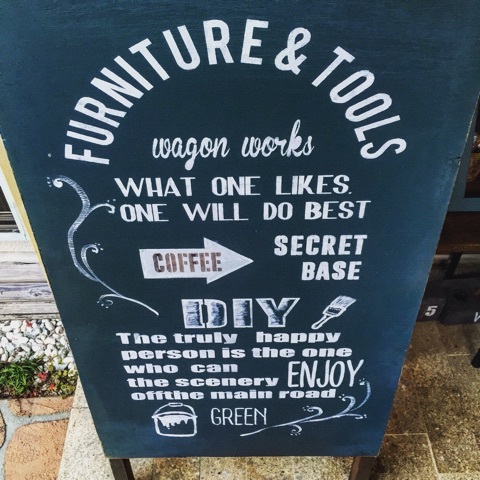 FURNITURE & TOOLS
wagon works
WHAT ONE LIKES,
ONE WILL DO BEST
COFFEE
SECRET
BASE
DIY
The truly happy
person is the one
who can
ENJOY
the scenery
offthe main road
GREEN
5